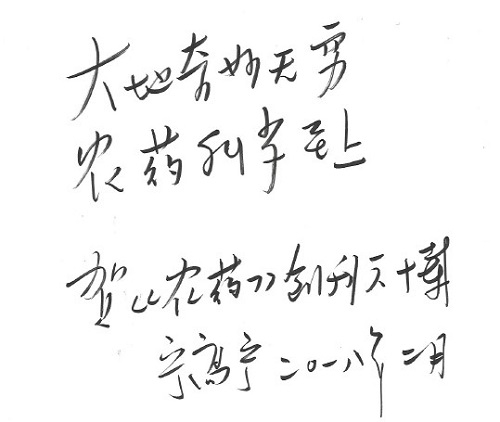 大地奇妙无穷
农药科学至上
贺《农药》创刊六十载
宁高宁 二〇一八年二月